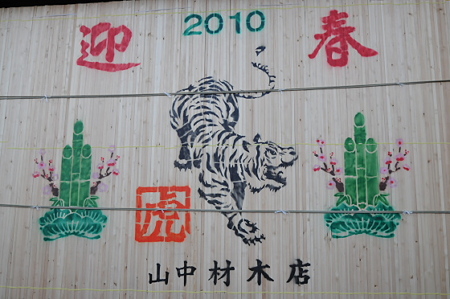 迎 2010 春
虎
山中材木店